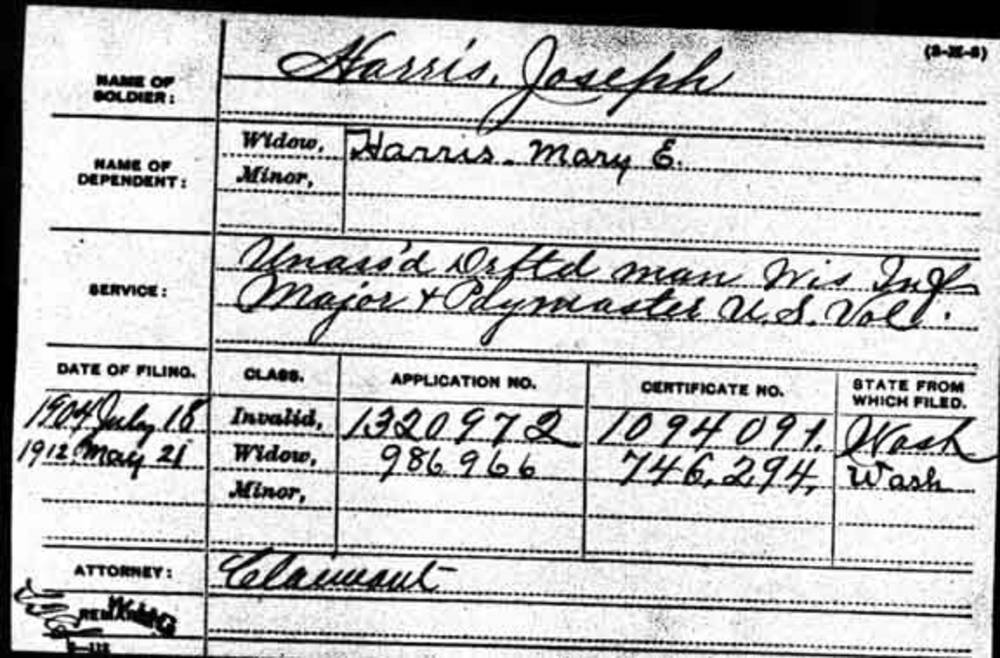 (3-IE-3)
NAME OF SOLDIER: Harris, Joseph
NAME OF DEPENDENT: Widow, Harris. Mary E.
Minor,
SERVICE: Unass'd Drftd man Wis Inf
Major + Paymaster U.S. Vol.
DATE OF FILING. CLASS. APPLICATION NO. CERTIFICATE NO. STATE FROM WHICH FILED.
1904 July 18 Invalid, 1320972 1094091. Wash
1912 May 21 Widow, 986966 746,294, Wash
Minor,
ATTORNEY: Claimant